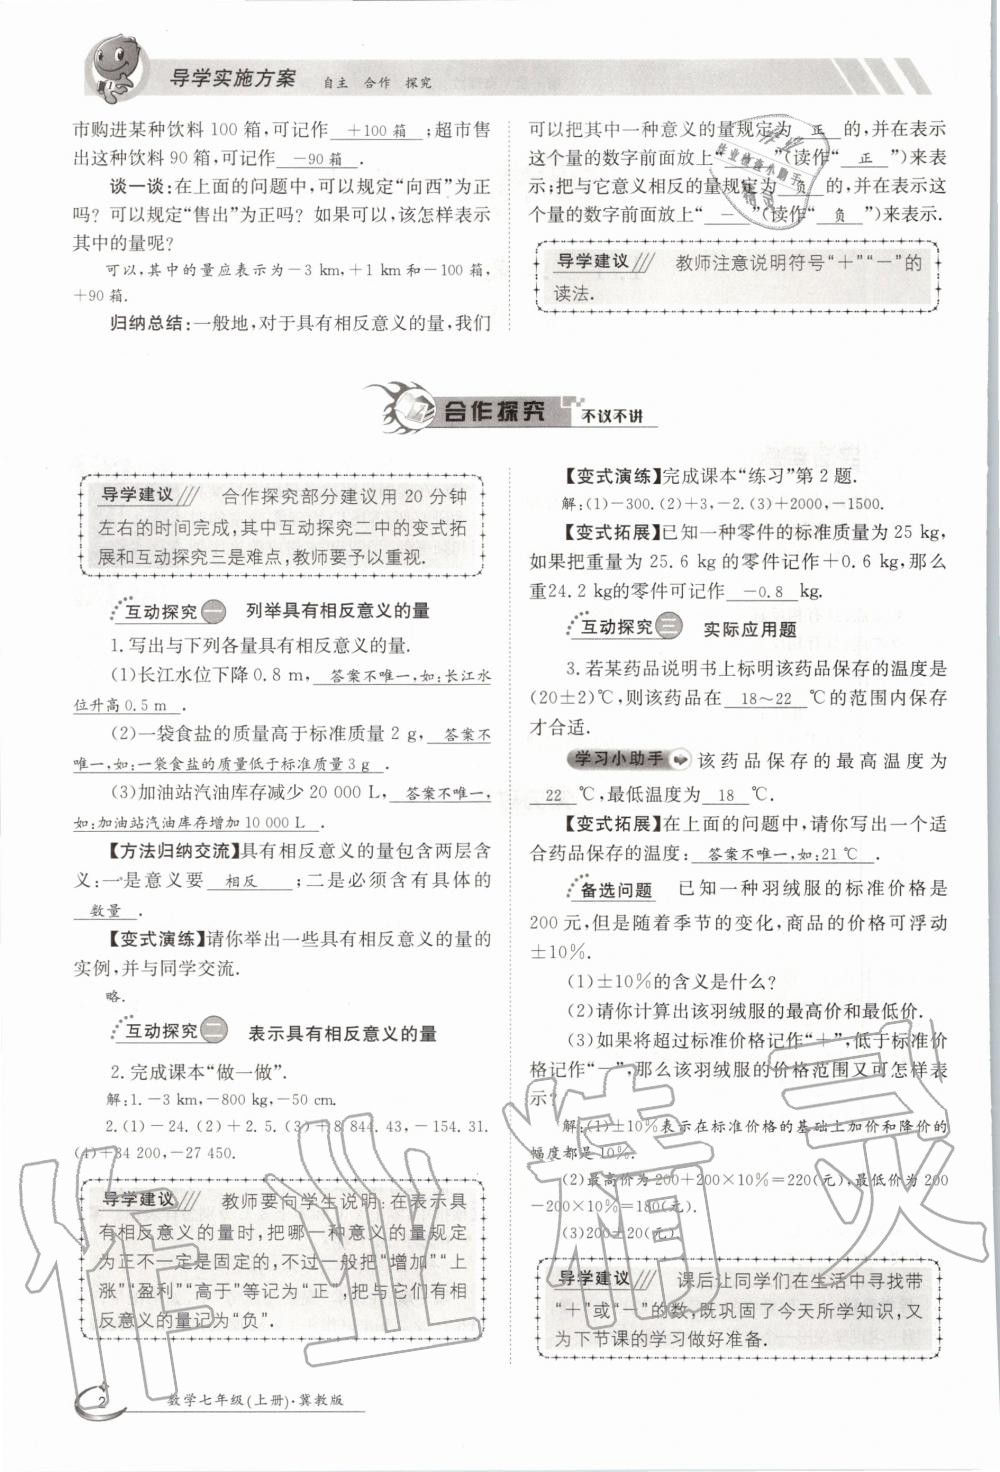 导学实施方案 自主 合作 探究
市购进某种饮料 100 箱,可记作 +100 箱 ;超市售
出这种饮料 90 箱,可记作 -90 箱 .
谈一谈:在上面的问题中,可以规定“向西”为正
吗? 可以规定“售出”为正吗? 如果可以,该怎样表示
其中的量呢?
可以,其中的量应表示为-3 km,+1 km和-100 箱,
+90 箱.
归纳总结:一般地,对于具有相反意义的量,我们
可以把其中一种意义的量规定为 正 的,并在表示
这个量的数字前面放上“ ”(读作“ 正 ”)来表
示;把与它意义相反的量规定为 负 的,并在表示
这个量的数字前面放上“ - ”(读作“ 负 ”)来表示.
导学建议 教师注意说明符号“+”“-”的
读法.
合作探究 不议不讲
导学建议 合作探究部分建议用 20 分钟
左右的时间完成,其中互动探究二中的变式拓
展和互动探究三是难点,教师要予以重视.
互动探究一 列举具有相反意义的量
1.写出与下列各量具有相反意义的量.
(1)长江水位下降 0.8 m, 答案不唯一,如:长江水
位升高 0.5 m .
(2)一袋食盐的质量高于标准质量 2 g, 答案不
唯一,如:一袋食盐的质量低于标准质量 3 g .
(3)加油站汽油库存减少 20 000 L, 答案不唯一,
如:加油站汽油库存增加 10 000 L .
【方法归纳交流】具有相反意义的量包含两层含
义:一是意义要 相反 ;二是必须含有具体的
数量 .
【变式演练】请你举出一些具有相反意义的量的
实例,并与同学交流.
略.
互动探究二 表示具有相反意义的量
2.完成课本“做一做”.
解:1.-3 km,-800 kg,-50 cm.
2.(1)-24.(2)+2.5.(3)+8 844.43,-154.31.
(4)+34 200,-27 450.
导学建议 教师要向学生说明:在表示具
有相反意义的量时,把哪一种意义的量规定
为正不一定是固定的,不过一般把“增加”“上
涨”“盈利”“高于”等记为“正”,把与它们有相
反意义的量记为“负”.
【变式演练】完成课本“练习”第 2 题.
解:(1)-300.(2)+3,-2.(3)+2000,-1500.
【变式拓展】已知一种零件的标准质量为 25 kg,
如果把重量为 25.6 kg 的零件记作+0.6 kg,那么
重24.2 kg的零件可记作 -0.8 kg.
互动探究三 实际应用题
3.若某药品说明书上标明该药品保存的温度是
(20±2)℃,则该药品在 18~22 ℃的范围内保存
才合适.
学习小助手 该药品保存的最高温度为
22 ℃,最低温度为 18 ℃.
【变式拓展】在上面的问题中,请你写出一个适
合药品保存的温度: 答案不唯一,如:21℃ .
备选问题 已知一种羽绒服的标准价格是
200 元,但是随着季节的变化,商品的价格可浮动
±10%.
(1)±10%的含义是什么?
(2)请你计算出该羽绒服的最高价和最低价.
(3)如果将超过标准价格记作“+”,低于标准价
格记作“-”,那么该羽绒服的价格范围又可怎样表
示?
解:(1)±10%表示在标准价格的基础上加价和降价的
幅度都是10%.
(2)最高价为200+200×10%=220(元),最低价为200
-200×10%=180(元).
(3)200±20(元).
导学建议 课后让同学们在生活中寻找带
“+”或“-”的数,既巩固了今天所学知识,又
为下节课的学习做好准备.
2 数学七年级(上册)·冀教版
作业精灵